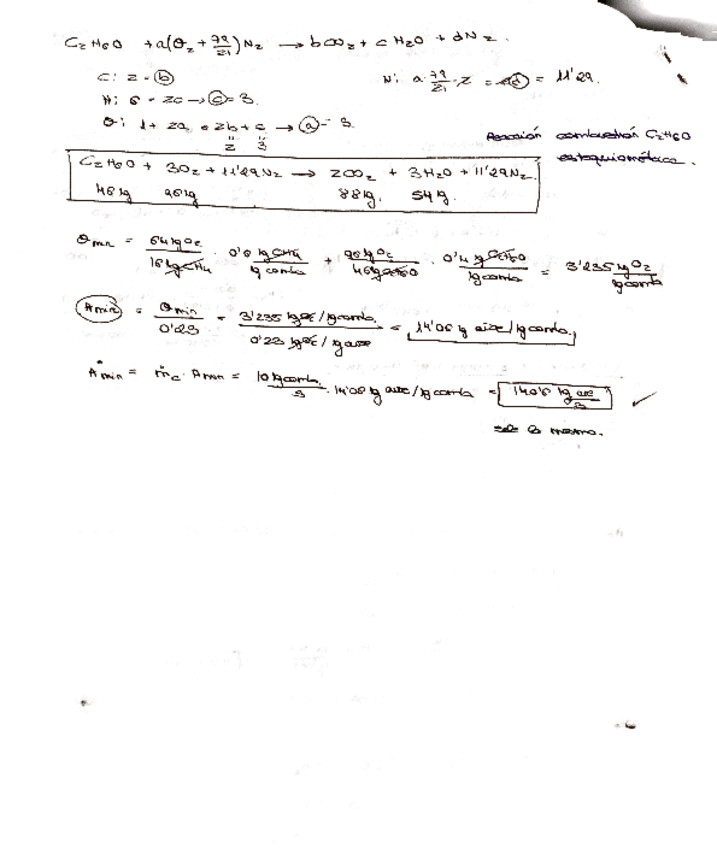 C₂H₆O + a(O₂ + 79/21)N₂ → bCO₂ + cH₂O + dN₂.
C: 2 = b
N: a · 79/21 · 2 = = 11'29.
H: 6 = 2c → c = 3.
O: 1 + 2a = 2b + c → a = 3.
2 3
Reacción combustión C₂H₆O
estequiométrica.
C₂H₆O + 3O₂ + 11'29N₂ → 2CO₂ + 3H₂O + 11'29N₂.
46 kg 96 kg 88 kg. 54 kg.
Omin = 64 kg O₂ / 16 kg CH₄ · 0'6 kg CH₄ / kg comb + 96 kg O₂ / 46 kg C₂H₆O · 0'4 kg C₂H₆O / kg comb = 3'235 kg O₂ / kg comb
Amin = Omin / 0'23 = 3'235 kg O₂ / kg comb. / 0'23 kg O₂ / kg aire = 14'06 kg aire / kg comb.
Ȧmin = ṁc · Amin = 10 kg comb. / s · 14'06 kg aire / kg comb = 140'6 kg aire / s
lo mismo.